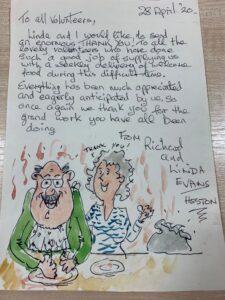 28 April '20
To all volunteers,
Linda and I would like to send
an enormous THANK YOU. To all the
lovely volunteers who have done
such a good job of supplying us
with a weekly delivery of welcome
food during this difficult time.
Everything has been much appreciated
and eagerly anticipated by us, so
once again a thank you for the
grand work you have all been
doing
FROM
Richard
and
LINDA
EVANS
HESTON
THANK YOU!